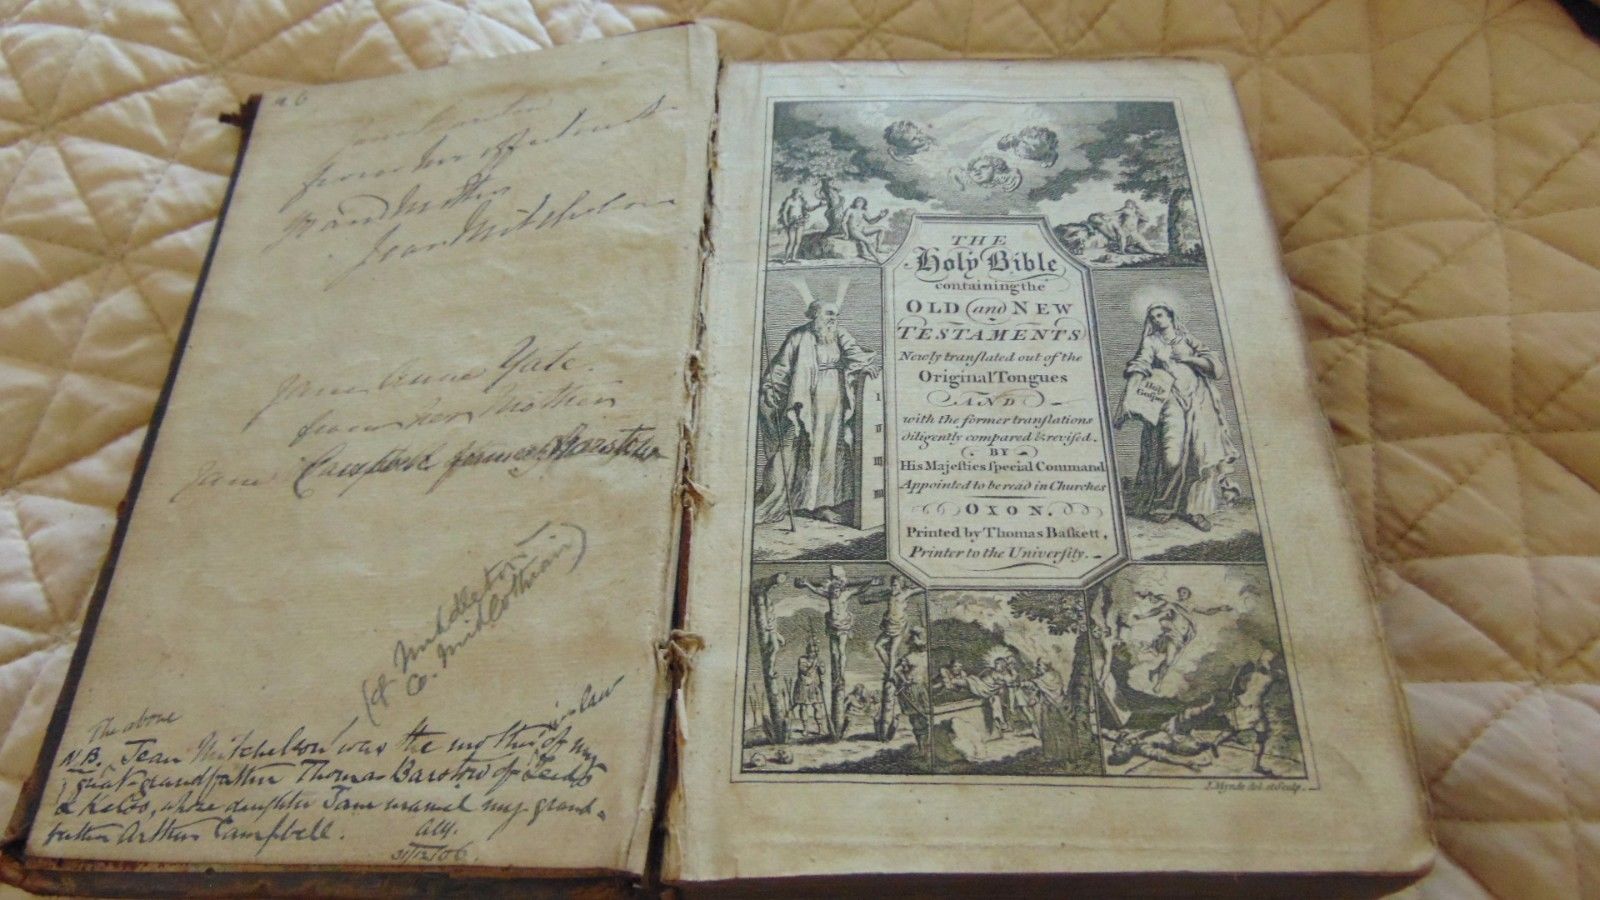 Jane Barstow
from her affectionate
Grandmother
Jean Mitchelson
Jane Anne Yate.
from her Mother
Jane Campbell formerly Barstow
(of Middleton
Co. Midlothian)
The above
N.B. Jean Mitchelson was the mother in law of my
great-grandfather Thomas Barstow of Leeds
& Kelso, whose daughter Jane married my grand-
father Arthur Campbell.
31/12/06.
THE
Holy Bible
containing the
OLD and NEW
TESTAMENTS
Newly tranſlated out of the
Original Tongues
AND
with the former tranſlations
diligently compared & reviſed.
BY
His Majeſties ſpecial Command
Appointed to be read in Churches
OXON.
Printed by Thomas Baſkett,
Printer to the Univerſity.
Holy
Goſpel
J. Mynde del. et Sculp.